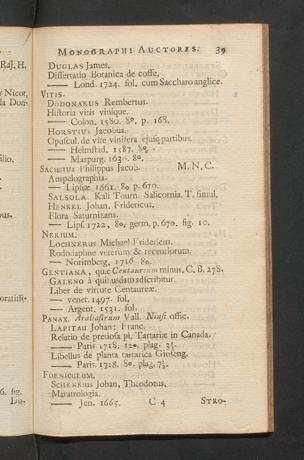 Raj. H,
Nicot,
la Don-
silio.
bus.
oratiss-
6. fig.
Do-
MONOGRAPHI AUCTORES. 39
DUGLAS James,
Dissertatio Botanica de coffe,
—— Lond. 1724. fol. cum Saccharo anglice.
VITIS.
DODONAEUS Rembertus.
Historia vitis vinique.
—— Colon. 1580. 8°. p. 168.
HORSTIUS Jacobus.
Opuscul. de vite vinifera ejusq; partibus.
—— Helmstad. 1587. 8°.
—— Marpurg. 1630. 8°.
SACHSIUS Philippus Jacob. M. N. C.
Ampelographia.
—— Lipsiæ 1661. 8. p. 670.
SALSOLA. Kali Tourn. Salicornia T. simul.
HENKEL Johan, Fridericus,
Flora Saturnizans.
—— Lips. 1722, 8°. germ. p. 670. fig. 10.
NERIUM.
LOCHNERUS Michael Fridericus.
Rododaphne veterum & recentiorum.
—— Norimberg, 1716 8°.
GENTIANA, quæ Centaurium minus, C. B. 278.
GALENO à quibusdam adscribitur.
Liber de virtute Centaureæ.
—— venet. 1497. fol.
—— Argent. 1531. fol.
PANAX. Araliastrum Vall. Ninsi offic.
LAFITAU Johan: Franc.
Relatio de preciosa pl. Tartariæ in Canada.
—— Paris 1718. 12°. plag. 3½.
Libellus de planta tartarica Ginseng.
—— Paris. 1718. 8°. plag. 7½.
FOENICULUM.
SCHENKIUS Johan, Theodotus.
Maratrologia.
—— Jen. 1665. C 4 STRO-